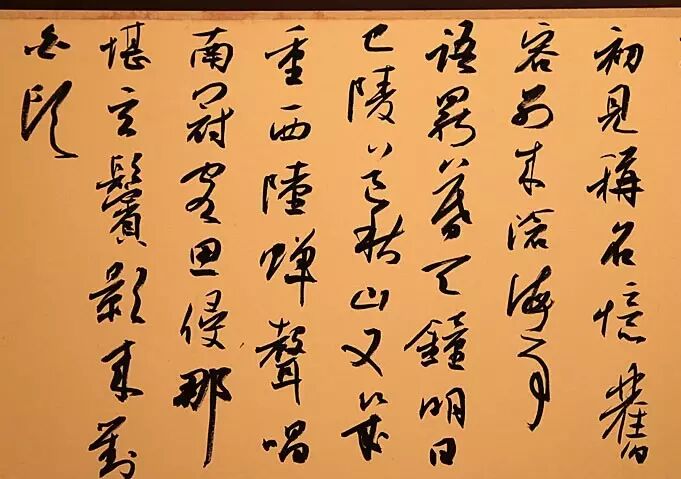 初見稱名憶舊
容別來滄海事
語罷暮天鐘明日
巴陵道秋山又幾
重西陸蟬聲唱
南冠客思侵那
堪玄鬢影來對
白頭